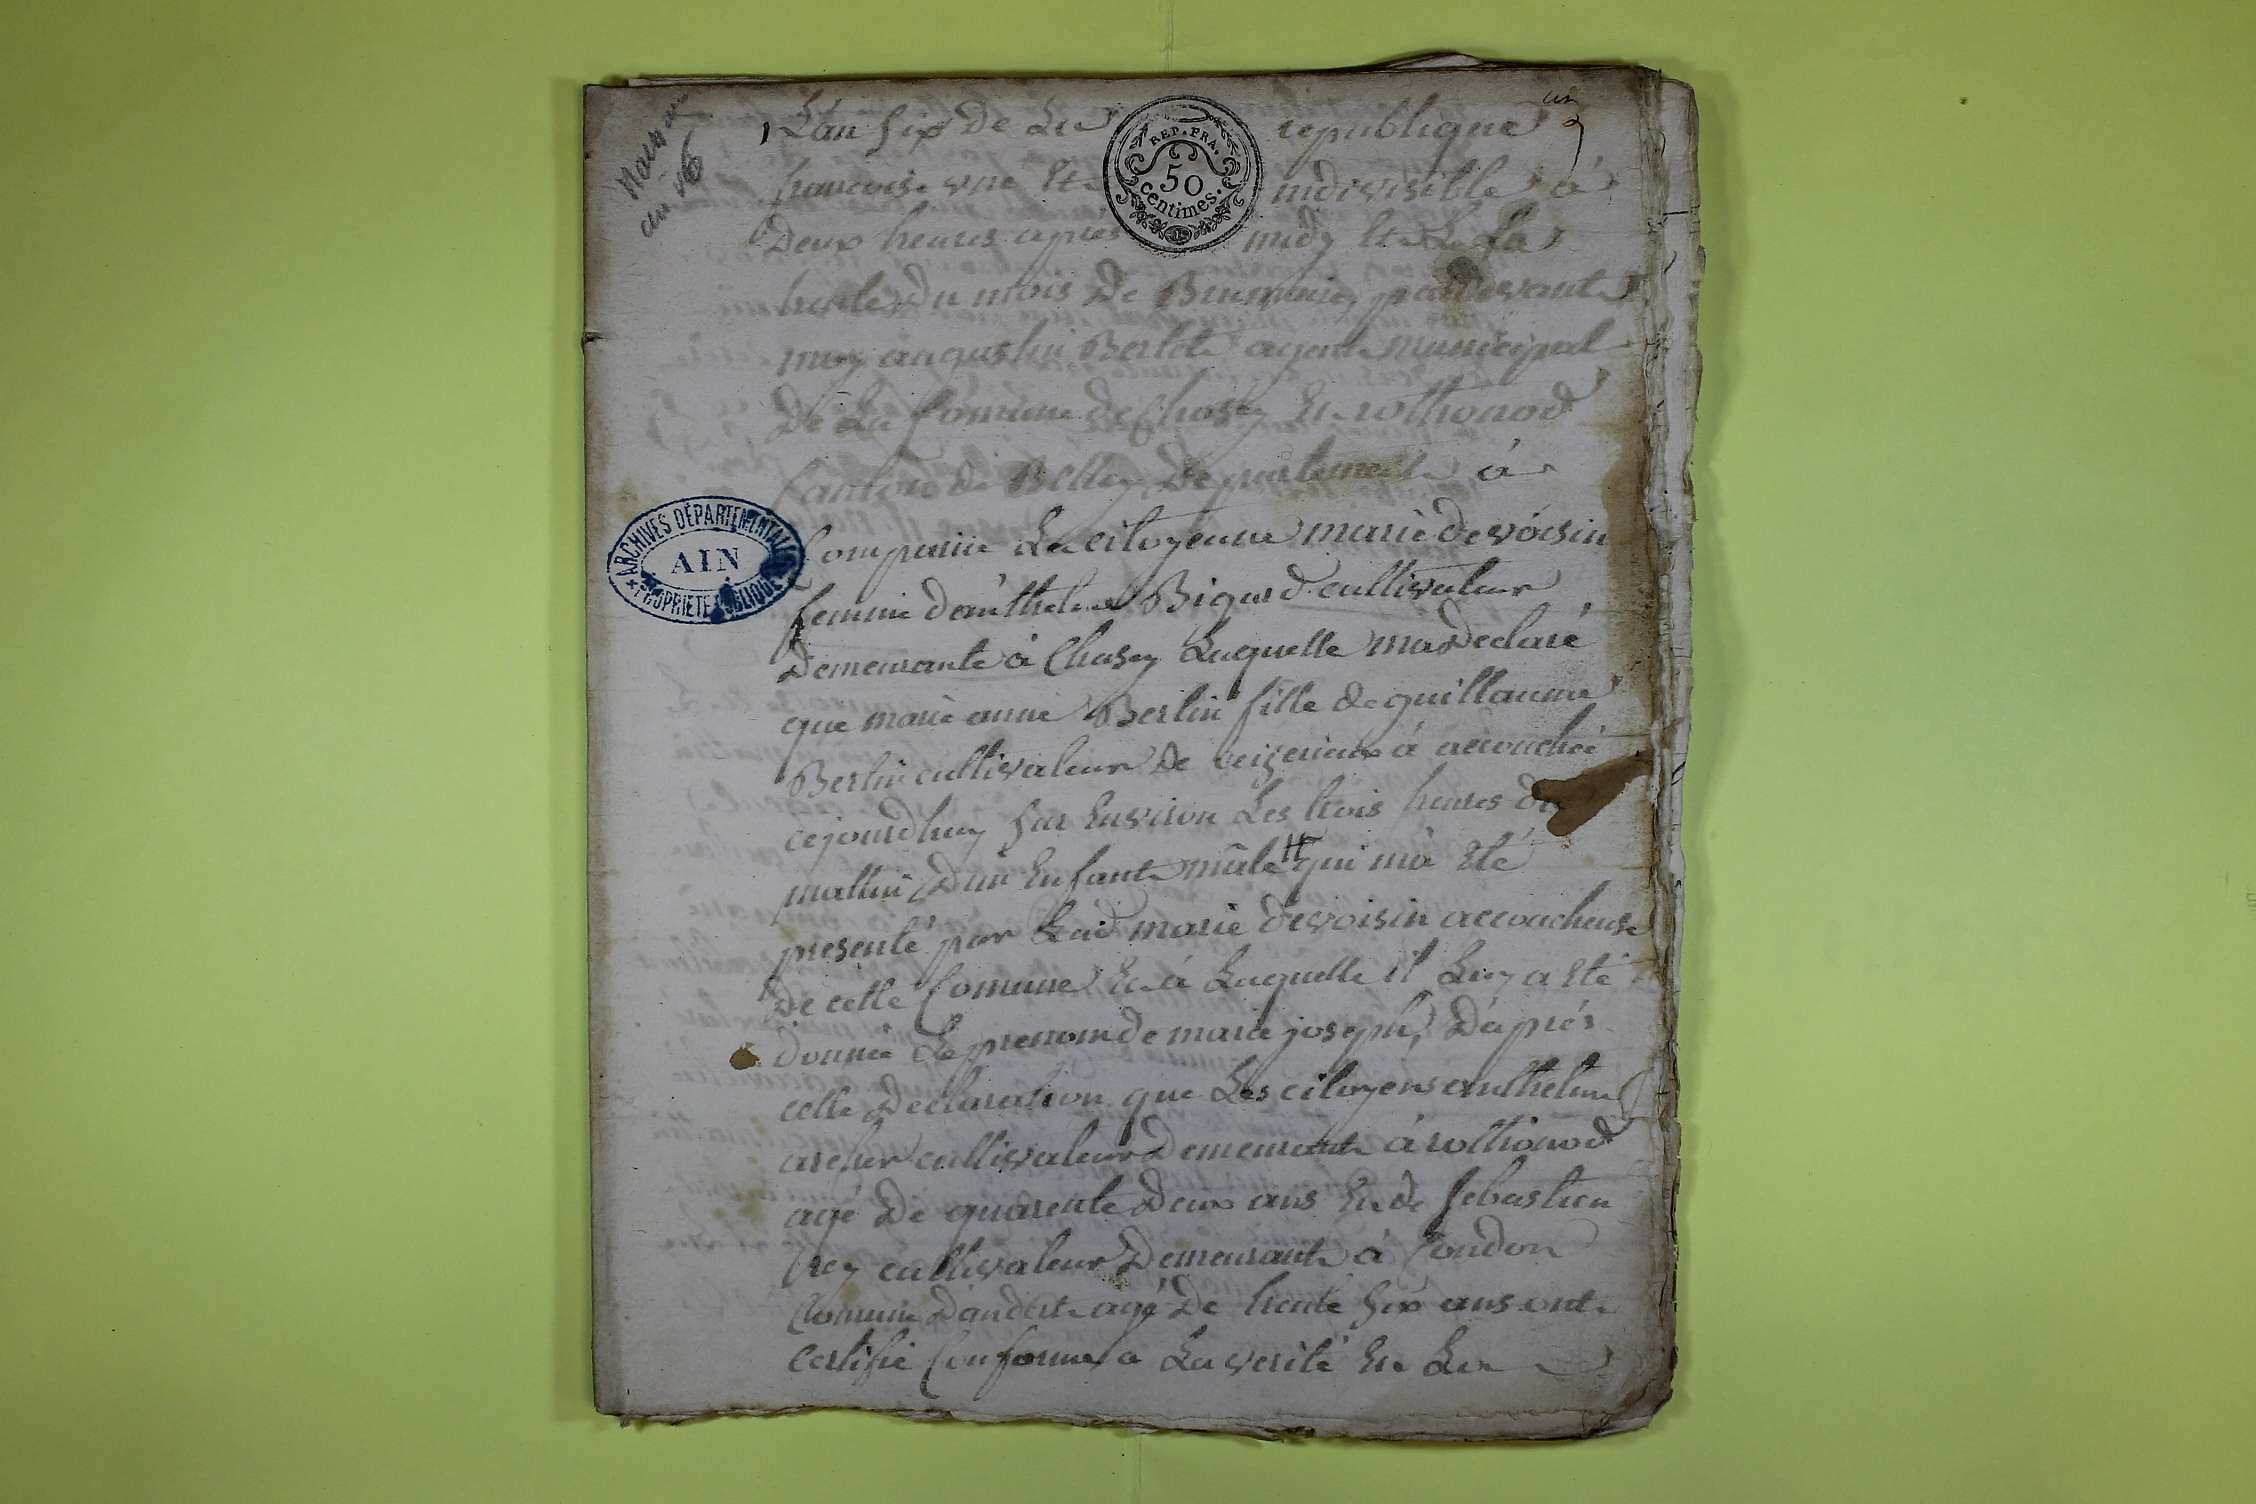 Naiss an
an 6
un
1 L'an six de La republique
francoise une Et indivisible à
Deux heures apres midy Et Le
trente du mois de Brumaire, pardevant
moy augustin Berlet agent municipal
De La Comune de Chasey Et rothonod
Canton de Belley Departement à
Comparue La citoyenne marie devoisin
femme d'anthelme Bigord cultivateur
Demeurante à Chasey Laquelle ma Declaré
que marie anne Berlin fille de guillaume
Berlin cultivateur de ceizerieux à accouchée
cejourdhuy sur Environ Les trois heures du
mattin D'un Enfant mâle qui mà Eté
presenté par Lad marie devoisin accoucheuse
De cette Comune Et à Laquelle il Luy a Eté
donnée Le prenom de marie joseph, D'après
cette Declaration que Les citoyens anthelme
archer cultivateur Demeurant à rothonod
agé De quarente Deux ans Et de sebastien
rey cultivateur Demeurant à Condon
Comune D'andert agé De trente six ans ont
Certifié Conforme a La verité Et La
REP. FRA.
50
centimes.
ARCHIVES DÉPARTEMENTALES
AIN
PROPRIÉTÉ PUBLIQUE